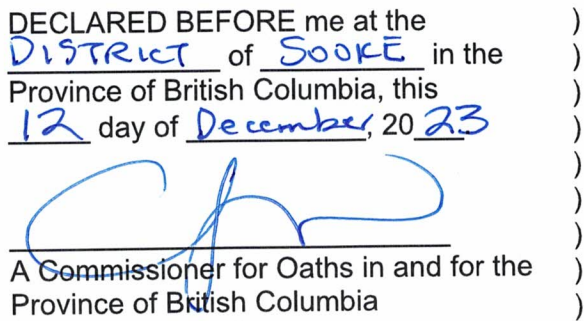 DECLARED BEFORE me at the )
DISTRICT of SOOKE in the )
Province of British Columbia, this )
12 day of December, 2023 )
)
)
)
A Commissioner for Oaths in and for the )
Province of British Columbia )